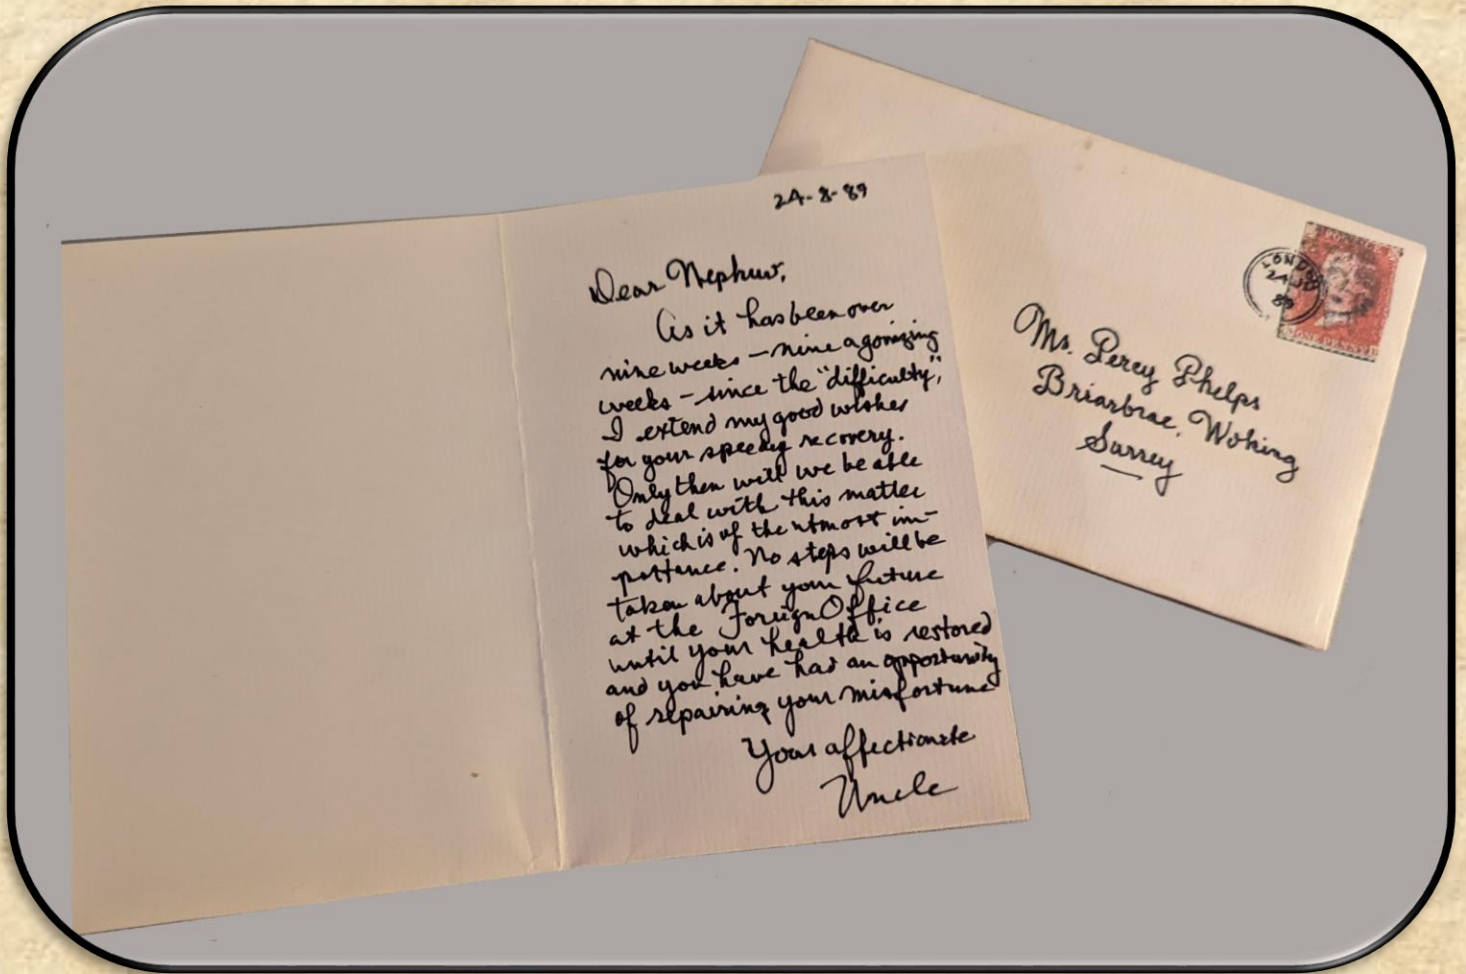 24-8-89
Dear Nephew,
As it has been over
nine weeks – nine agonizing
weeks – since the "difficulty",
I extend my good wishes
for your speedy recovery.
Only then will we be able
to deal with this matter
which is of the utmost im-
portance. No steps will be
taken about your future
at the Foreign Office
until your health is restored
and you have had an opportunity
of repairing your misfortune
Your affectionate
Uncle
Mr. Percy Phelps
Briarbrae, Woking
Surrey
LONDON
24
89
POSTAGE
ONE PENNY